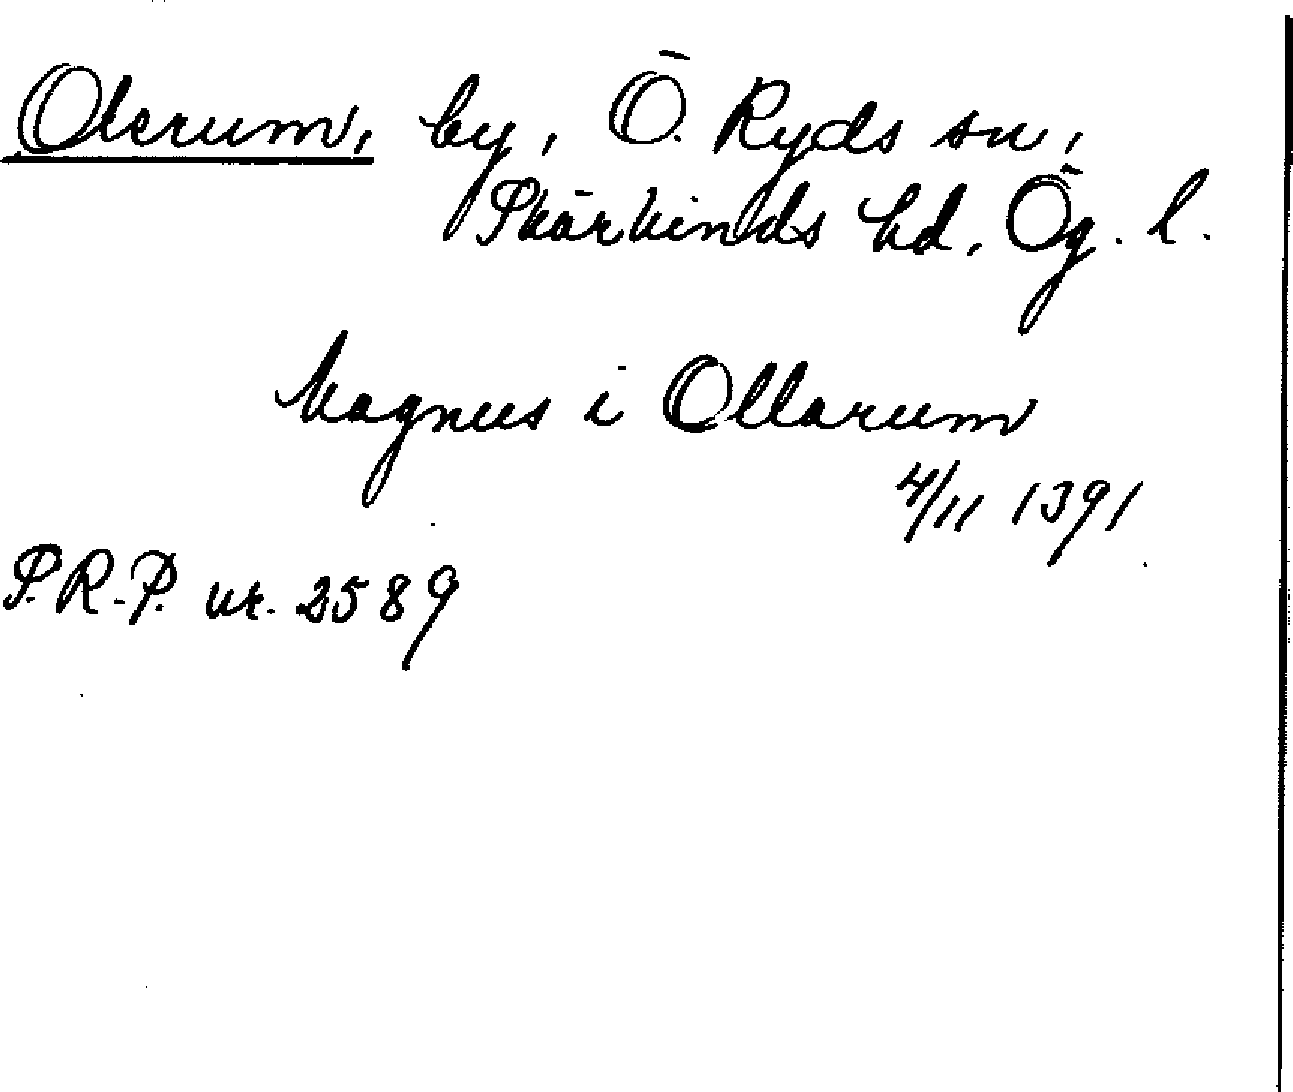 Olerum, by, Ö. Ryds sn,
Skärkinds hd, Ög. l.
Magnus i Ollarum
4/11 1391
S.R.-P. nr. 2589